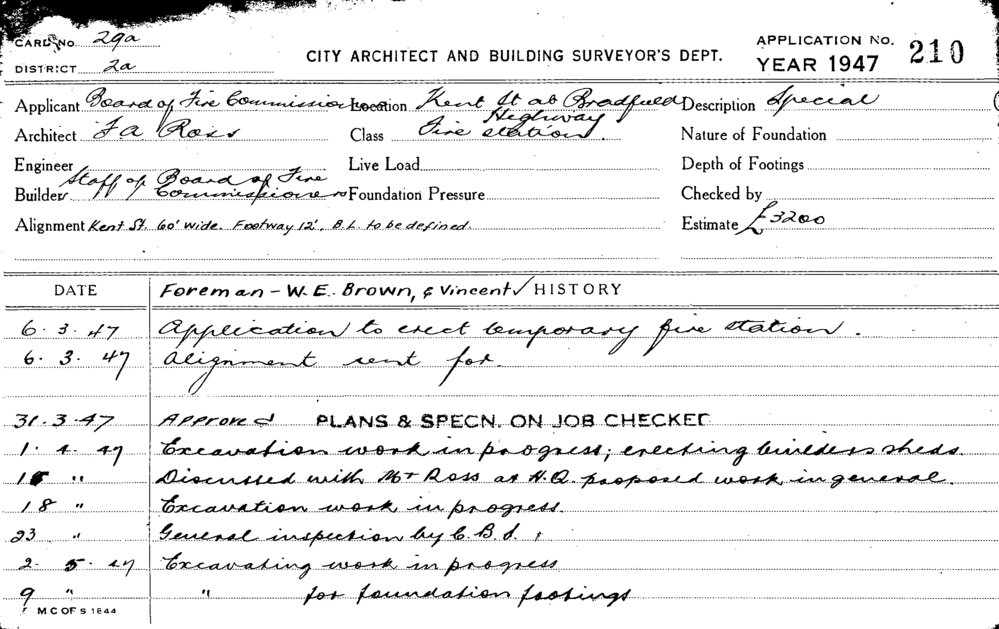 CARD NO. 29a
CITY ARCHITECT AND BUILDING SURVEYOR'S DEPT.
APPLICATION NO. 210
DISTRICT 2a
YEAR 1947
Applicant Board of Fire Commissioners Location Kent St at Bradfield Highway Description Special
Architect F A Ross Class Fire station Nature of Foundation
Engineer Live Load Depth of Footings
Builders Staff of Board of Fire Commissioners Foundation Pressure Checked by
Alignment Kent St. 60' wide. Footway 12'. B.L. to be defined. Estimate £3200
DATE Foreman - W.E. Brown, & Vincent HISTORY
6. 3. 47 Application to erect temporary fire station.
6. 3. 47 Alignment sent for.
31. 3. 47 Approved PLANS & SPECN. ON JOB CHECKED
1. 4. 47 Excavation work in progress; erecting builders sheds
15 " Discussed with Mr Ross at H.Q. proposed work in general.
18 " Excavation work in progress.
23 " General inspection by C.B.I.
2. 5. 47 Excavating work in progress
9 " " for foundation footings
M C OF S 1844